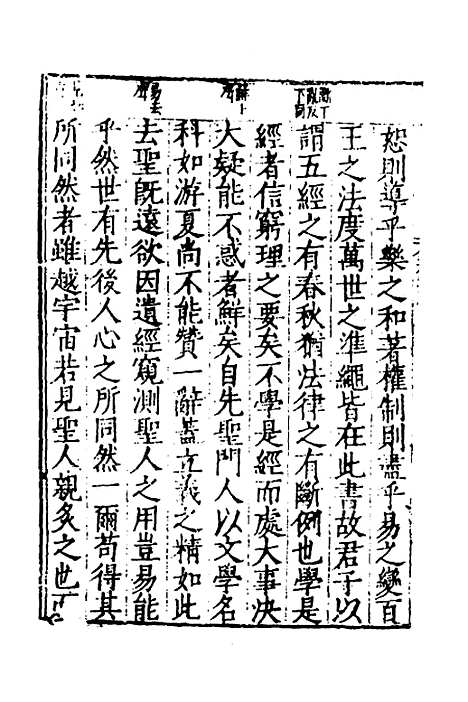 恕則導乎樂之和著權制則盡乎易之變百
王之法度萬世之準繩皆在此書故君子以
謂五經之有春秋猶法律之有斷例也學是
經者信窮理之要矣不學是經而處大事決
大疑能不惑者鮮矣自先聖門人以文學名
科如游夏尚不能贊一辭蓋立義之精如此
去聖既遠欲因遺經窺測聖人之用豈易能
乎然世有先後人心之所同然一爾苟得其
所同然者雖越宇宙若見聖人親炙之也